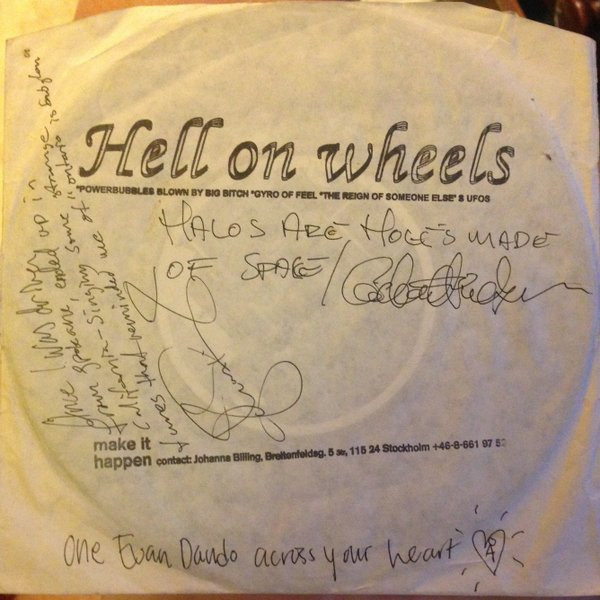 Hell on wheels
"POWERBUBBLES BLOWN BY BIG BITCH "GYRO OF FEEL "THE REIGN OF SOMEONE ELSE" 8 UFOS
HALOS ARE HOLES MADE
OF SPACE/
Once I was driving up in
from Spokane, ended up in
California - singing some strange
tunes that reminded me of "Ontario is Babylon"
make it
happen contact: Johanna Billing, Breitenfeldsg. 5 115 24 Stockholm +46-8-661 97 52
One Evan Dando across your heart